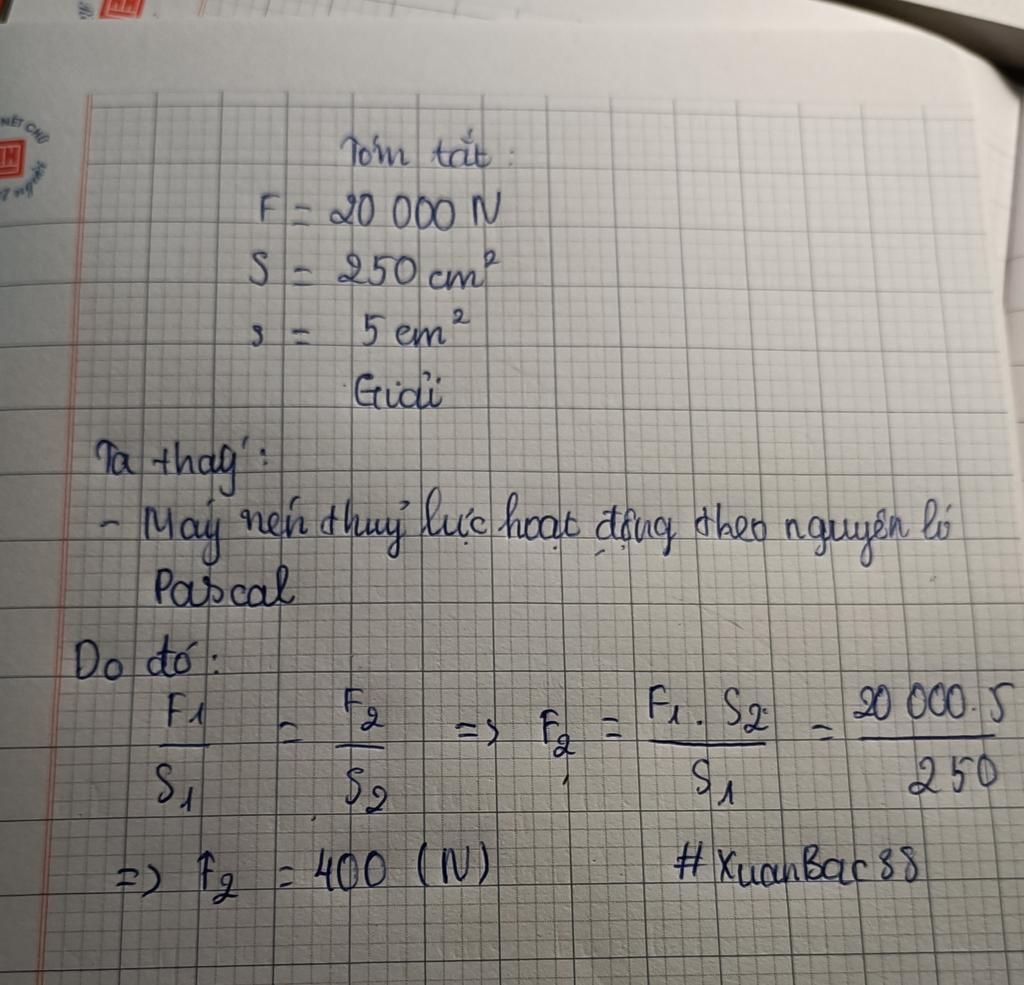 Tóm tắt:
F = 20 000 N
S = 250 cm²
s = 5 cm²
Giải
Ta thấy:
- Máy nén thuỷ lực hoạt động theo nguyên lí
Pascal
Do đó:
F1/S1 = F2/S2 => F2 = F1.S2/S1 = 20 000.5/250
=> F2 = 400 (N) #XuanBac88
NÉT CHỮ